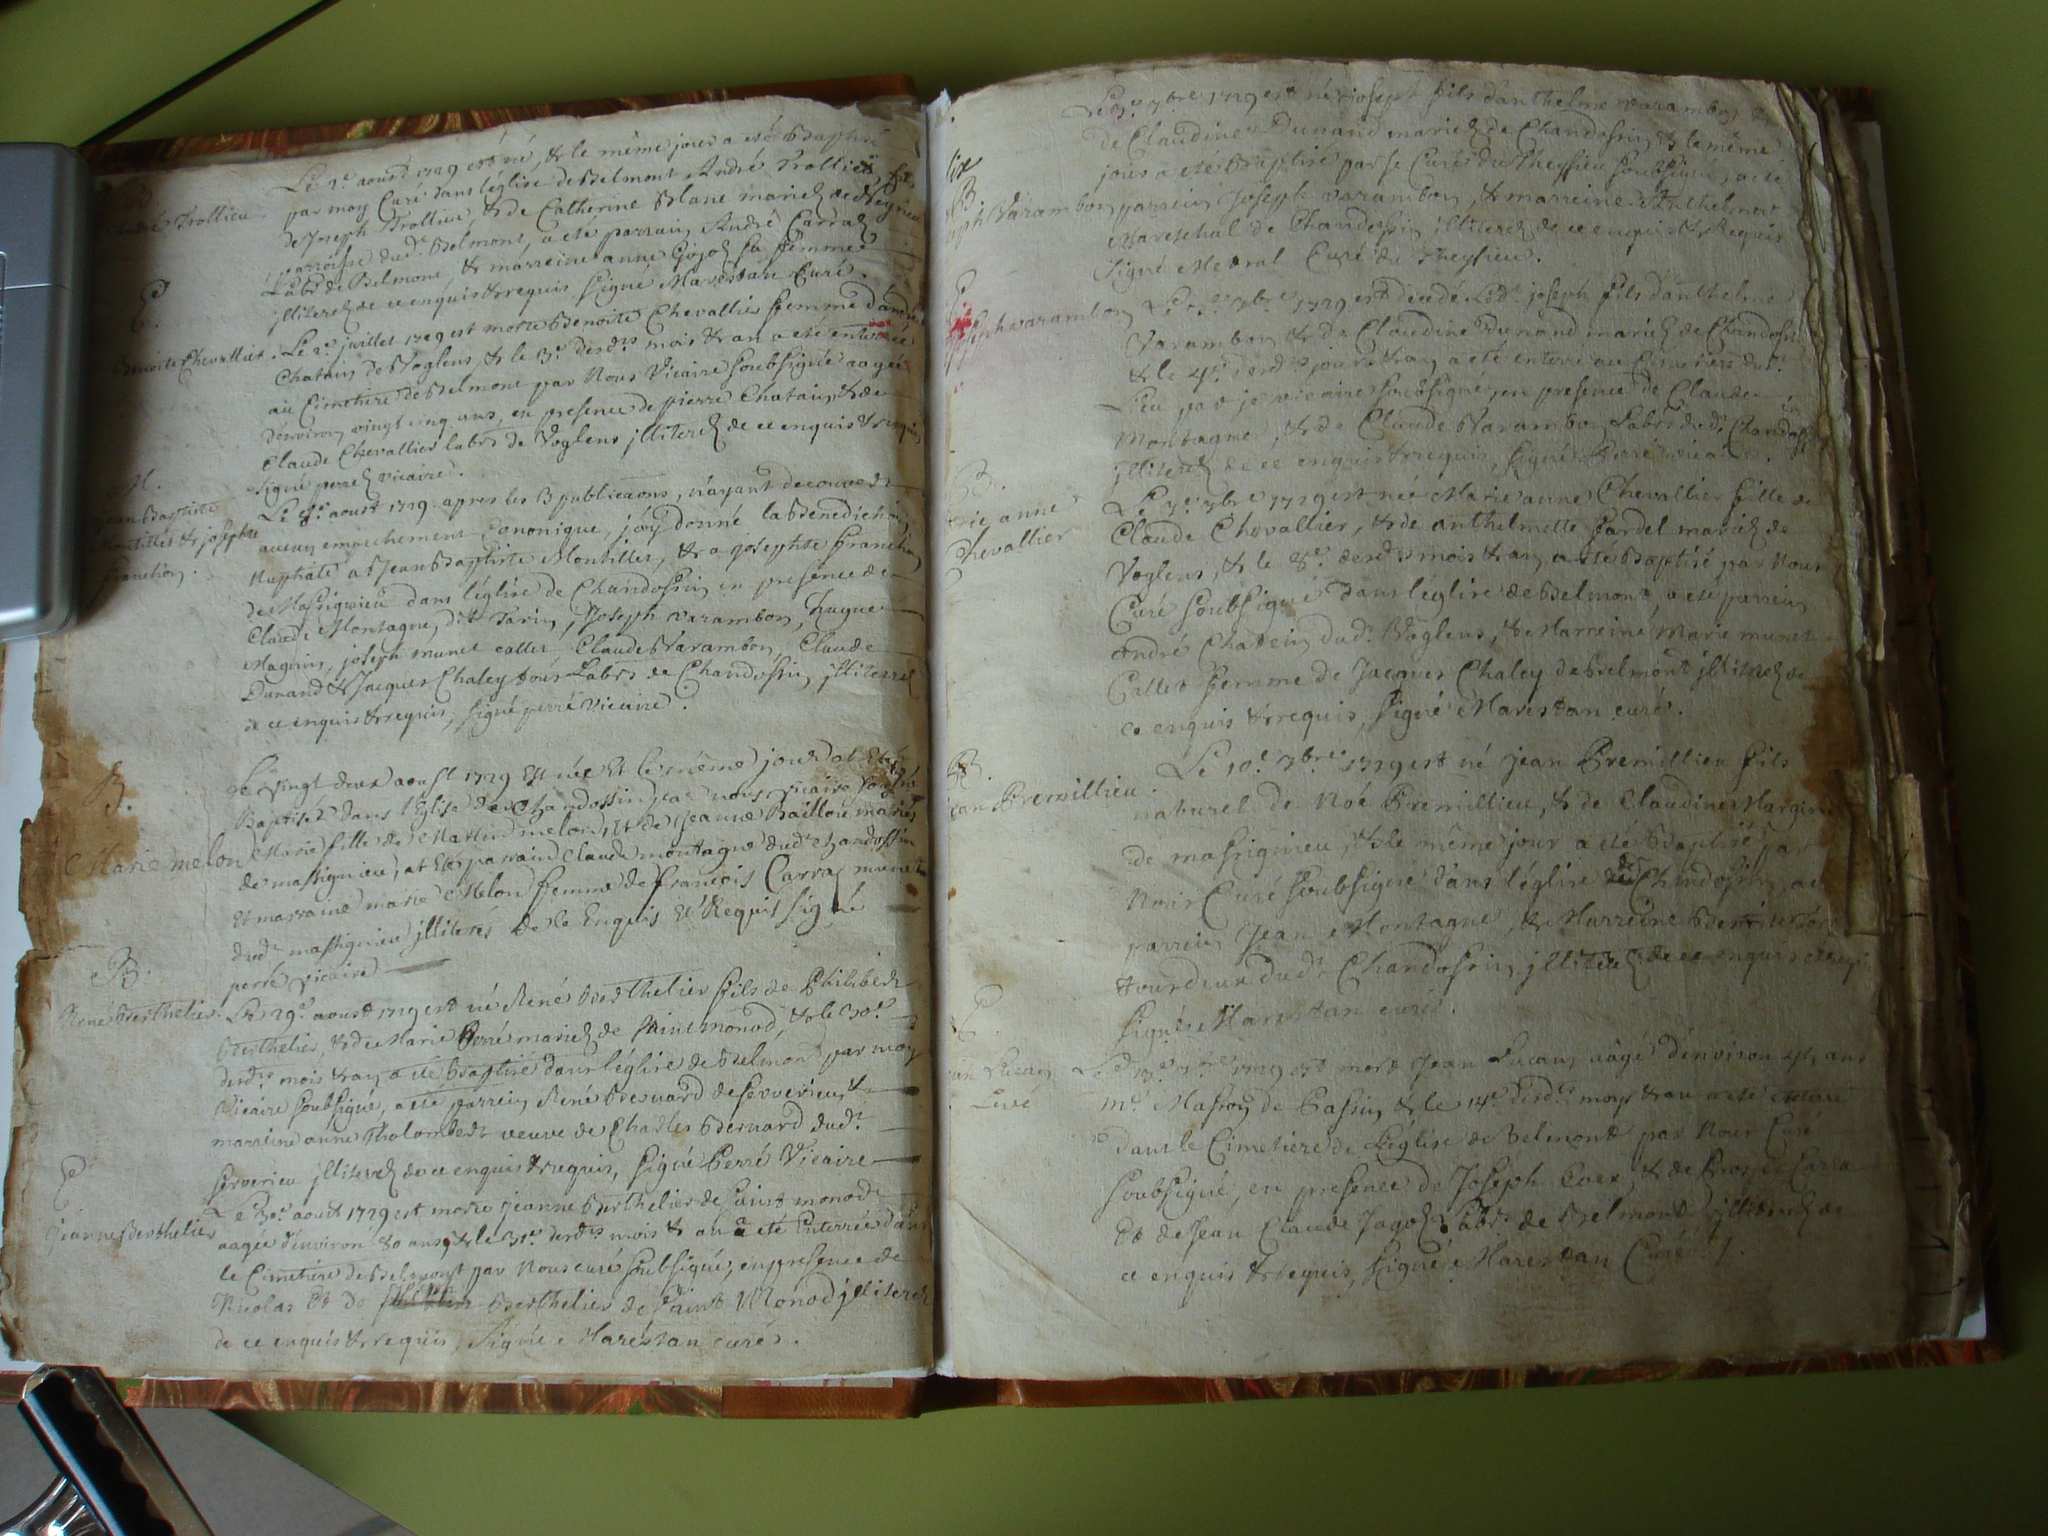 B.
André Trollieu
Le 2e. aoust 1729 est né, & le même jour a été Baptisé
par moy Curé dans l'église de Belmont André Trollieu, fils
de Joseph Trollieu, & de Catherine Blanc mariez de
parroisse dud. Belmont, a été parrain André Carraz
Labr. de Belmont & marreine anne Gojoz sa femme
jlliterez de ce enquis & requis Signé Marestan Curé.
E.
Benoite Chevallier.
Le 2e. juillet 1729 est morte Benoite Chevallier femme d'andré
Chatain de Voglens & le 3e. desds. mois & an a été enterrée
au Cimetiere de Belmont par Nous Vicaire soubsigné aagée
d'environ vingt cinq ans, en presence de pierre Chatain, & de
Claude Chevallier labrs. de Voglens jlliterez de ce enquis & requis
Signé perré vicaire.
M.
jean Baptiste
Montillet & josephte
franchon.
Le aoust 1729 apres les 3 publicaons, n'ayant decouvert
aucun empechement Canonique, j'ay donné la Benediction
Nuptiale a Jean Baptiste Montillet, & a josephte franchon
de Massignieu dans l'église de Chandossin en presence de
Claude Montagne dit Tarin, Joseph varambon, hugue
Magnin, joseph munet callet Claude Varambon, Claude
Dunand & Jacques Chaley tous Labrs de Chandossin jlliterez
de ce enquis & requis, signé perré Vicaire.
B.
Marie melon
Le vingt deux aoust 1729 Est née Et le même jour at Eté
Baptisée dans l'Eglise de Chandossin par nous vicaire soussigné
Marie fille de Martin melon, Et de Jeanne Baillou mariés
de massignieu, at Eté parrain Claude montagne dudt. chandossin
Et marraine marie Melon femme de françois Carraz munet
dudt massignieu jlliterés de ce Enquis Et Requis signé
perré vicaire
B.
René Berthelier.
Le 29e. aoust 1729 est né René Berthelier fils de Philibert
Berthelier, & de Marie Perré mariez de saint monod, & le 30e.
desds. mois & an a été Baptisé dans l'église de Belmont par moy
Vicaire soubsigné, a été parrein René Bernard de serverieu &
marreine anne Tholombert veuve de Charles Bernard dudt.
serverieu jlliterez de ce enquis & requis, signé Perré Vicaire
E
Jeanne Berthelier
Le 30e. aout 1729 est morte jeanne Berthelier de saint monod
aagée d'environ 80 ans & le 31e. desds mois & an a été Enterrée dans
le Cimetiére de Belmont par Nous curé soubsigné, en presence de
Nicolas Et de Berthelier de saint Monod jlliterez
de ce enquis & requis, Signé Maréstan curé.
B
Joseph Varambon
Le 3e. 7bre 1729 est né joseph fils d'anthelme varambon &
de Claudine Dunand mariez de Chandossin, & le même
jour a été Baptisé par se Curé du Theysieu soubsigné, a été
parrein Joseph varambon, & marreine Anthelmette
Mareschal de Chandossin jlliterez de ce enquis & Requis
signé Medral Curé de Theysieu.
E
Joseph varambon
Le 3e. 7bre. 1729 est decedé Led. joseph fils d'anthelme
Varambon & de Claudine Dunand mariez de Chandossin
& le 4e. desds jour & an a été enterré au Cimetiere dud.
Lieu par je vicaire soubsigné en presence de Claude
Montagne, & de Claude Varambon Labrs dud. Chandossin
jlliterez de ce enquis & requis, signé Perré vicaire.
B.
Marie anne
Chevallier
Le 7e. 7bre. 1729 est née Marie anne Chevallier fille de
Claude Chevallier, & de anthelmette fardel mariez de
Voglens, & le 8e. desds mois & an a été Baptisé par Nous
Curé soubsigné dans l'église de Belmont, a été parrein
André Chatein dud. Voglens, & Marreine Marie munet
Callet femme de Jacques Chaley de Belmont jlliterez de
ce enquis & requis, signé Marestan curé.
B.
jean Premillieu.
Le 10e. 7bre. 1729 est né jean Premillieu fils
naturel de Noé Premillieu, & de Claudine Margin
de massignieu, & le même jour a été Baptisé par
Nous Curé soubsigné dans l'église de Chandossin, a été
parrein Jean Montagne, & Marreine
tourdeur dud. Chandossin jlliterez de ce enquis & requis
signé Marestan curé.
E
jean Lucain
Le 13e. 7bre 1729 est mort Jean Lucain aagé d'environ 45 ans
me. Masson de Passin & le 14e desds. moys & an a été enterré
dans le Cimetiere de L'église de Belmont par Nous Curé
soubsigné, en presence de Joseph & de Carra
Et de Jean Claude Jagoz Labrs de Belmont jlliterez de
ce enquis & requis, signé Marestan Curé.